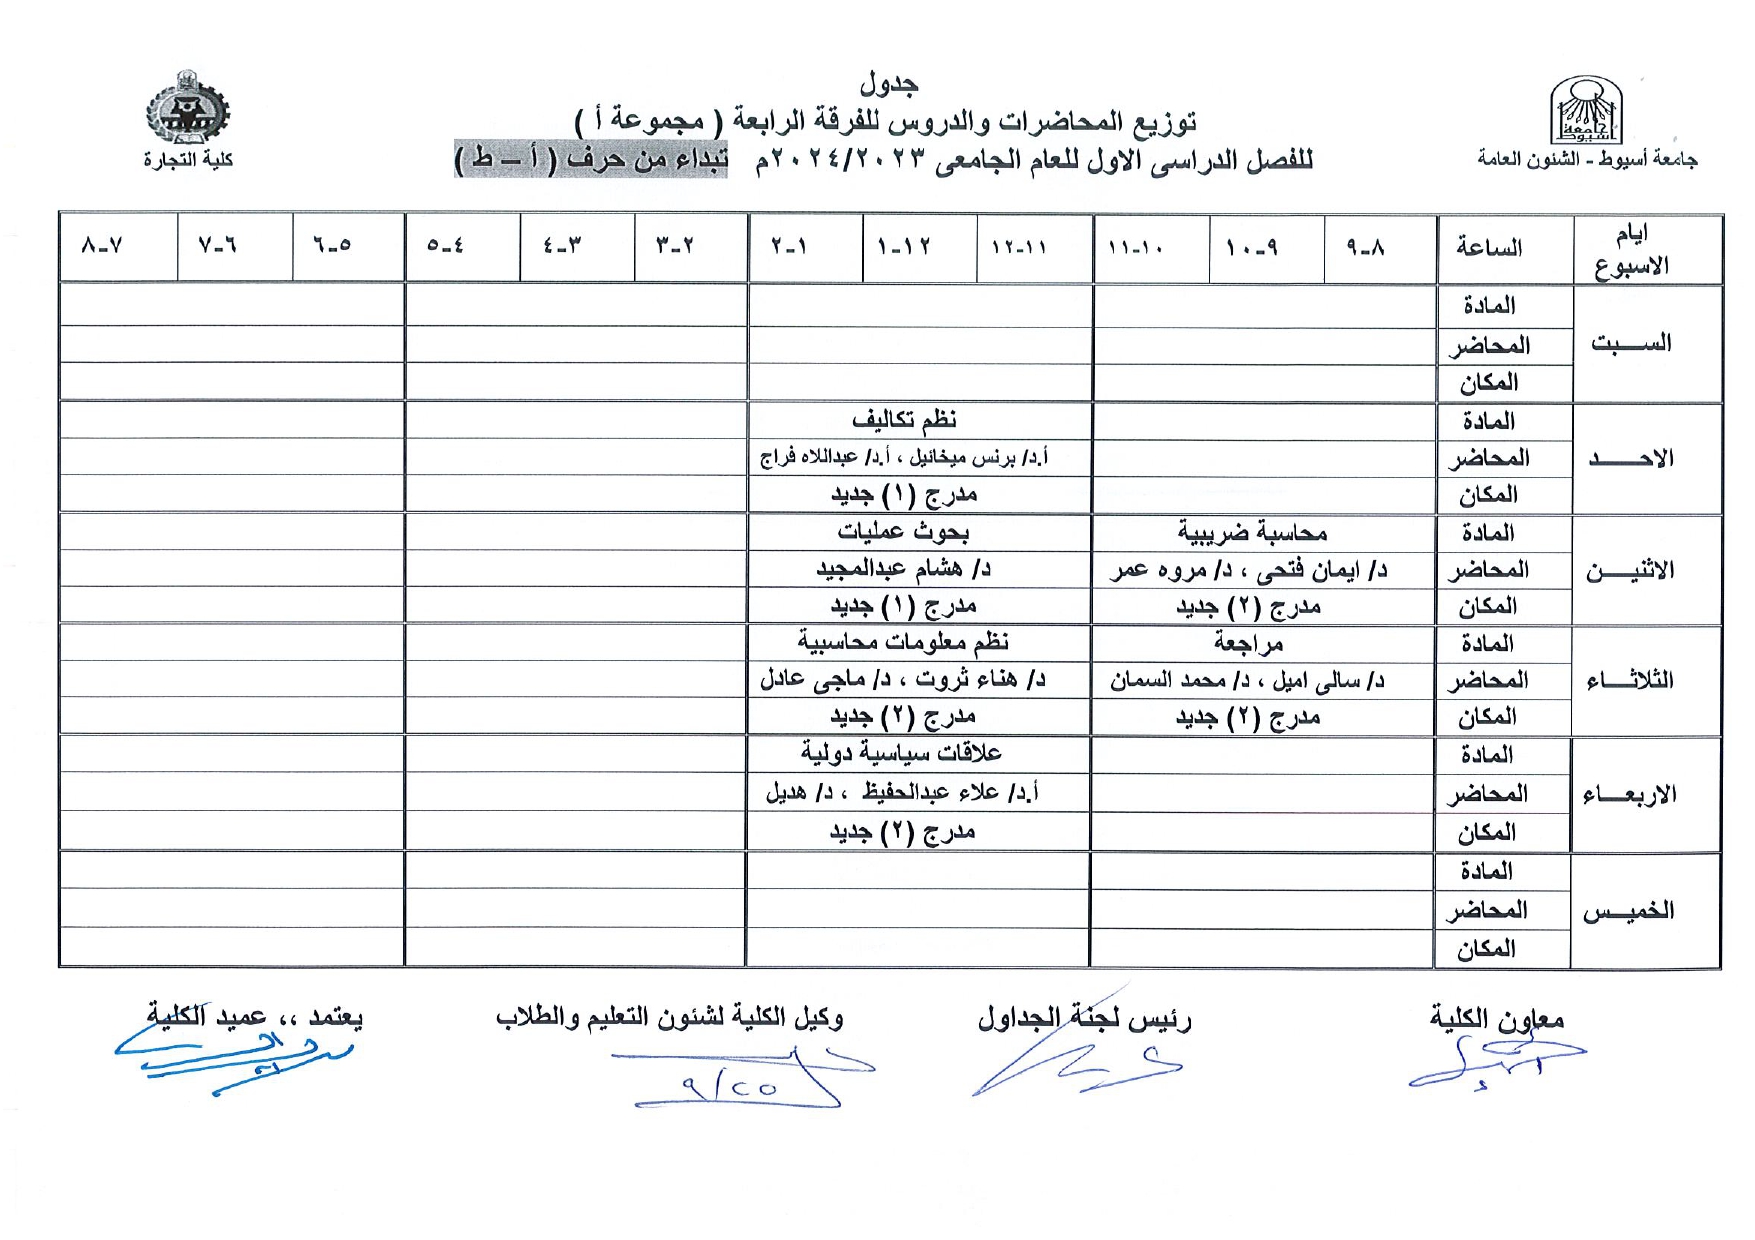 جدول
توزيع المحاضرات والدروس للفرقة الرابعة ( مجموعة أ )
للفصل الدراسى الاول للعام الجامعى ٢٠٢٤/٢٠٢٣م تبداء من حرف ( أ – ط )
جامعة أسيوط
جامعة أسيوط - الشئون العامة
كلية التجارة
ايام الاسبوع الساعة ٨-٩ ٩-١٠ ١٠-١١ ١١-١٢ ١٢-١ ١-٢ ٢-٣ ٣-٤ ٤-٥ ٥-٦ ٦-٧ ٧-٨
السبت
المادة
المحاضر
المكان
الاحد
المادة نظم تكاليف
المحاضر أ.د/ برنس ميخائيل ، أ.د/ عبداللاه فراج
المكان مدرج (١) جديد
الاثنين
المادة محاسبة ضريبية بحوث عمليات
المحاضر د/ ايمان فتحى ، د/ مروه عمر د/ هشام عبدالمجيد
المكان مدرج (٢) جديد مدرج (١) جديد
الثلاثاء
المادة مراجعة نظم معلومات محاسبية
المحاضر د/ سالى اميل ، د/ محمد السمان د/ هناء ثروت ، د/ ماجى عادل
المكان مدرج (٢) جديد مدرج (٢) جديد
الاربعاء
المادة علاقات سياسية دولية
المحاضر أ.د/ علاء عبدالحفيظ ، د/ هديل
المكان مدرج (٢) جديد
الخميس
المادة
المحاضر
المكان
معاون الكلية رئيس لجنة الجداول وكيل الكلية لشئون التعليم والطلاب يعتمد ،، عميد الكلية
٩/٢٥